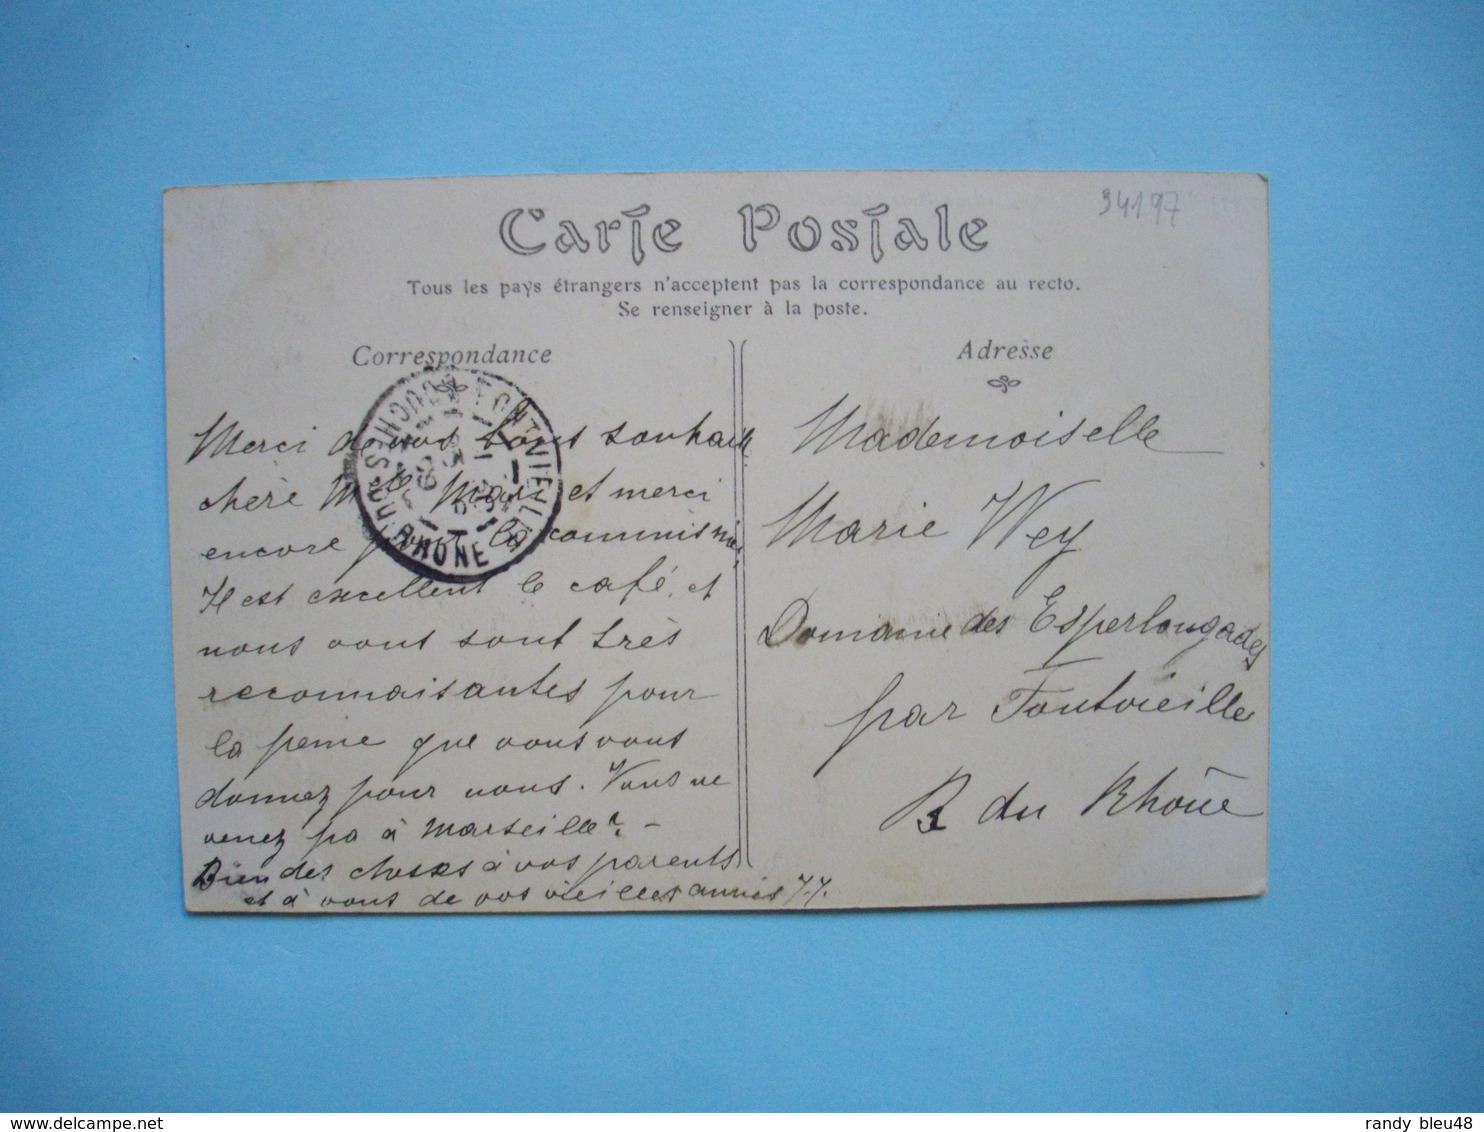 34197
Carte Postale
Tous les pays étrangers n'acceptent pas la correspondance au recto.
Se renseigner à la poste.
Correspondance
Merci de vos bons souhaits
chère Mlle et merci
encore pour la commission,
Il est excellent le café, et
nous vous sont très
reconnaisantes pour
la peine que vous vous
donnez pour nous. Vous ne
venez pa à Marseille? –
Bien des choses à vos parents
et à vous de vos vieilles amies
FONTVIEILLE
BOUCHES-DU-RHONE
Adresse
Mademoiselle
Marie Wey
Domaine des Esperlougades
par Fontvieille
B du Rhône
randy bleu48